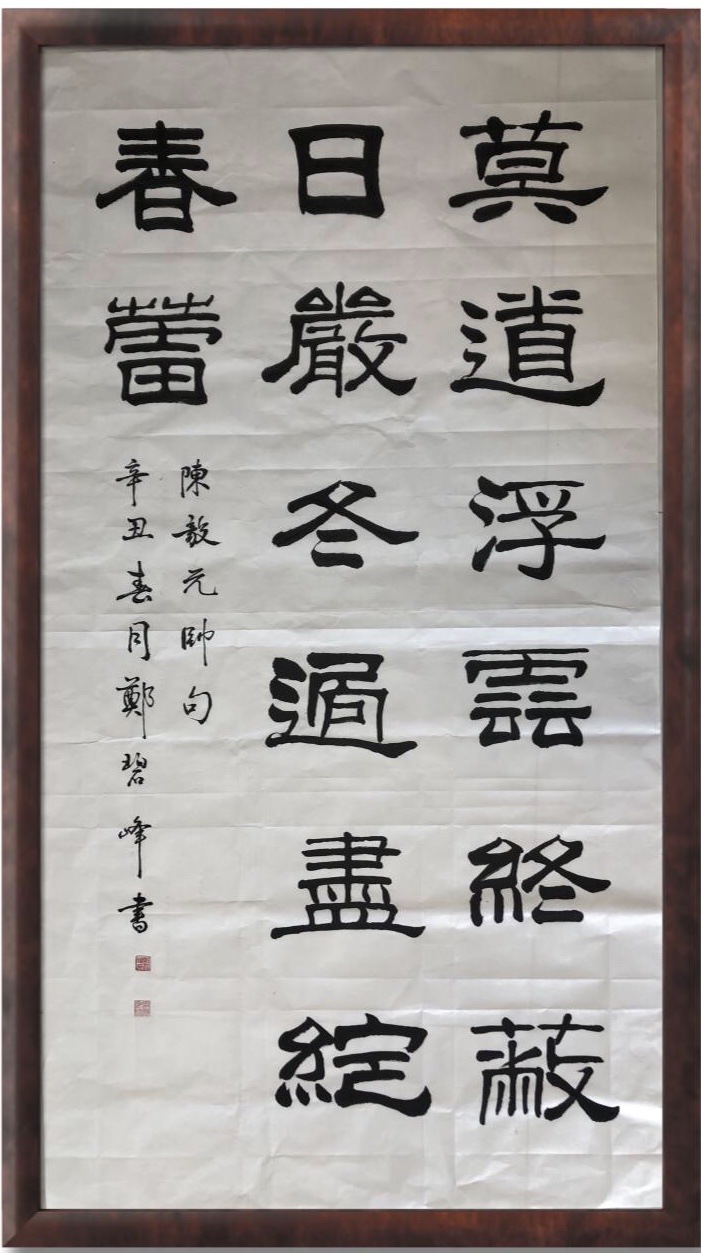 莫道浮雲終蔽
日嚴冬過盡綻
春蕾
陳毅元帥句
辛丑春月鄭碧峰書